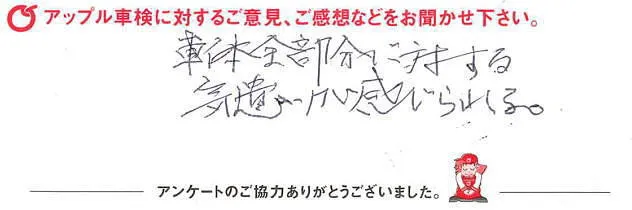 アップル車検に対するご意見、ご感想などをお聞かせ下さい。
車体全部分に対する
気遣いが感じられる。
アンケートのご協力ありがとうございました。